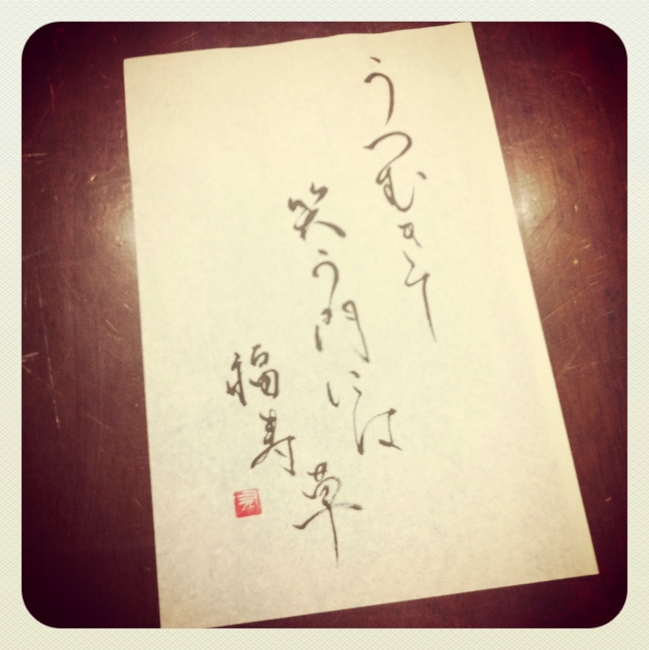 うつむきて
笑う門には
福寿草